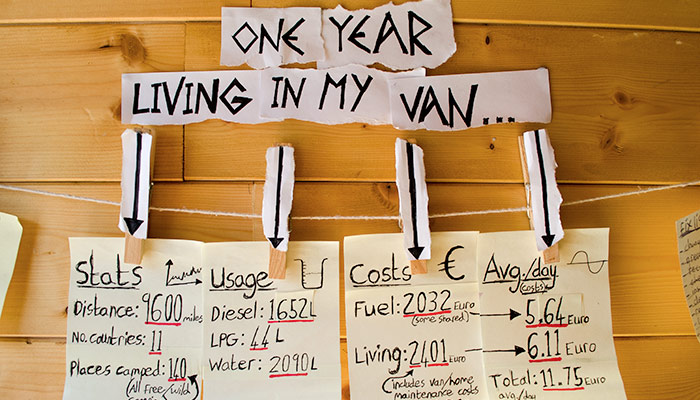 ONE YEAR
LIVING IN MY VAN...
Stats
Distance: 9600 miles
No. countries: 11
Places camped: 140
(All free/wild
Usage
Diesel: 1652L
LPG: 44 L
Water: 2090L
Costs €
Fuel: 2032 Euro
(some shared)
Living: 2401 Euro
(includes van/home
maintenance costs
Avg./day
(costs)
5.64 Euro
6.11 Euro
Total: 11.75 Euro
avg./day